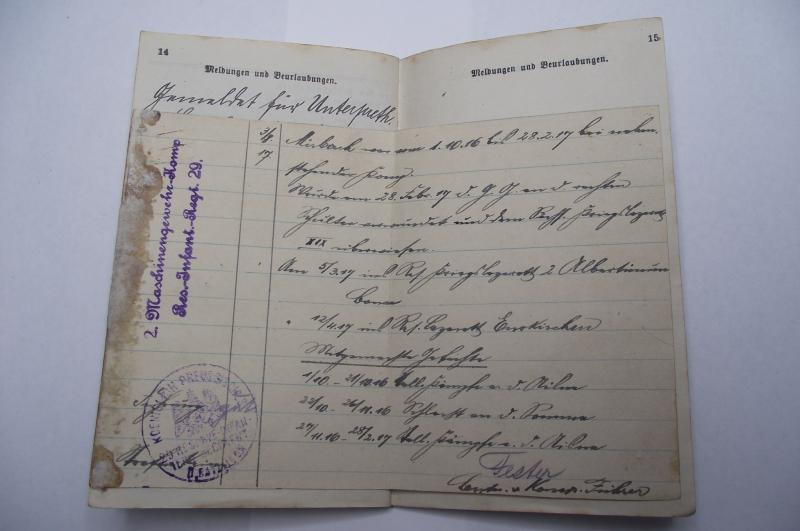 14
Meldungen und Beurlaubungen.
15
Meldungen und Beurlaubungen.
Gemeldet für Unterpreth.
2. Maschinengewehr-Komp
Res.-Infant.-Regt. 29.
3/4
17
Misbach war vom 1.10.16 bis 28.2.17 bei neben-
stehender Komp.
Wurde am 28. Febr. 17 d. G. G. an d. rechten
Schulter verwundet und dem Kriegslazarett
XIX überwiesen.
Am 5/3.17 ins Res. Kriegslazarett 2 Albertinum
Bonn
" 12/4.17 ins Res. Lazarett Euskirchen
Mitgemachte Gefechte
1/10 - 21/10.16 Stell. Kämpfe a. d. Aisne
22/10 - 26/11.16 Schlacht an d. Somme
27/11.16 - 28/2.17 Stell. Kämpfe a. d. Aisne
Fester
Leutn. u. Komp. Führer
KOENIGLICH PREUSSISCH